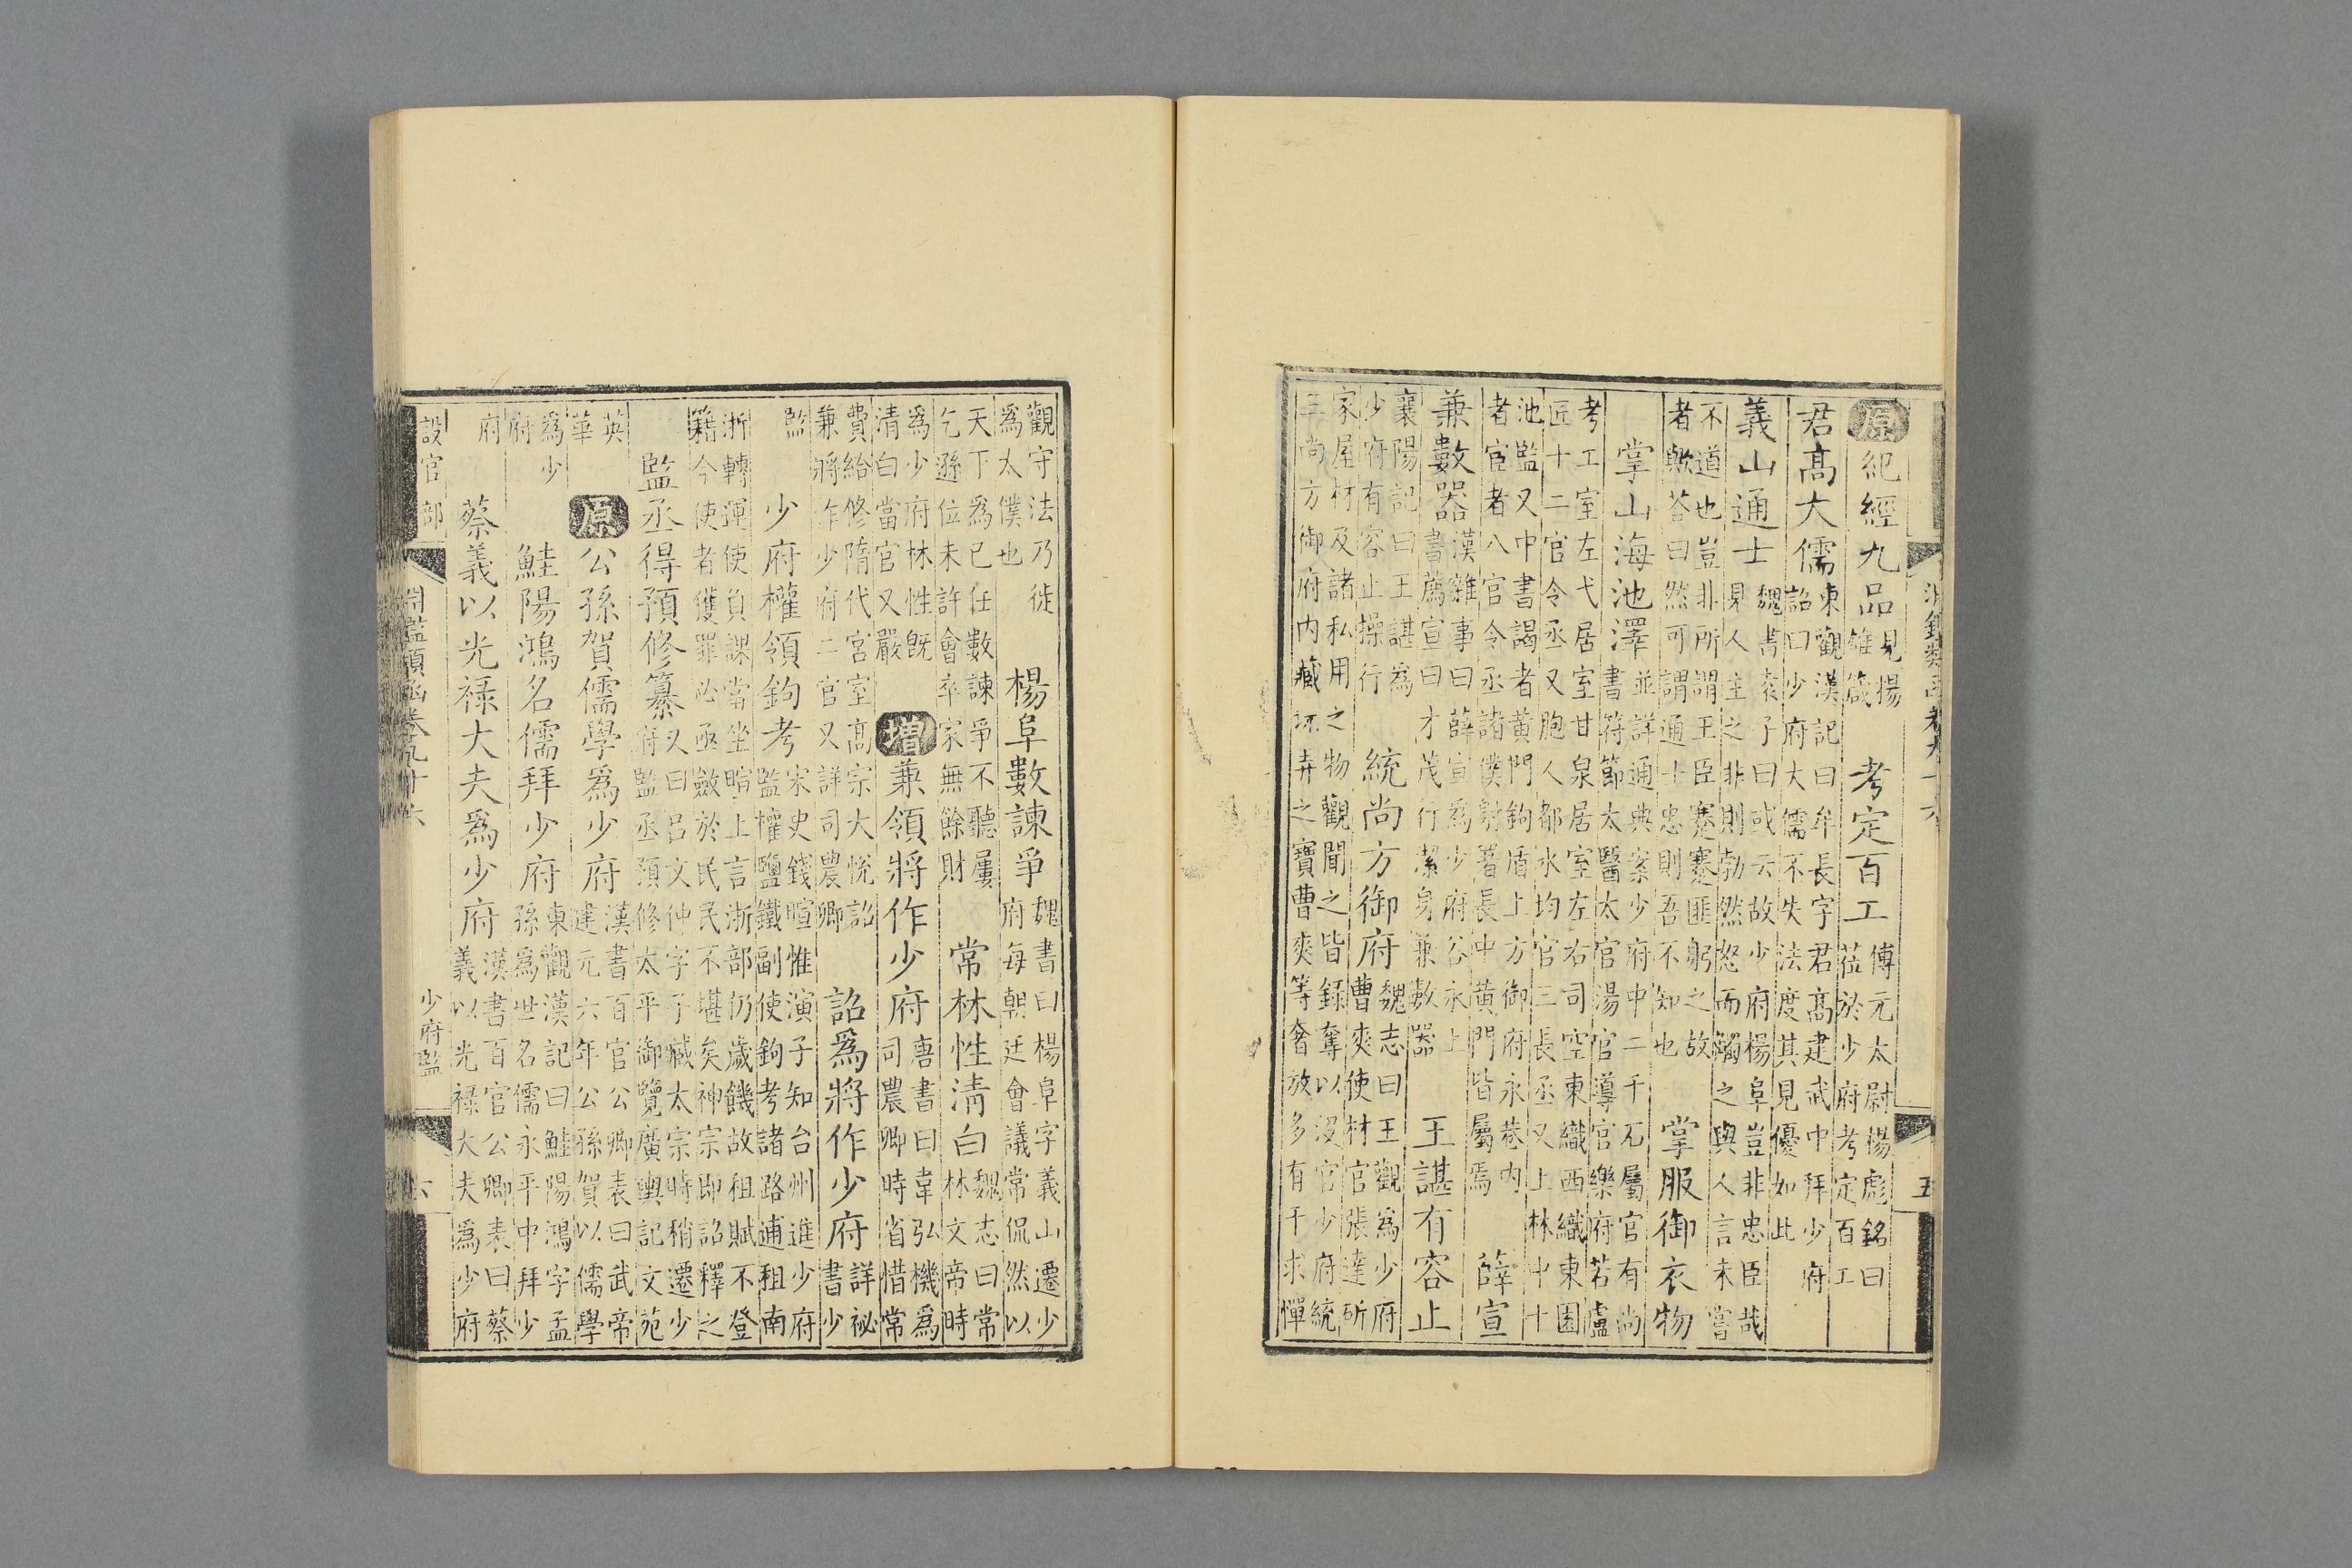 淵鑑類函卷九十六 五
原紀經九品見揚雄箴 考定百工傅元太尉楊彪銘曰莅於少府考定百工
君高大儒東觀漢記曰牟長字君高建武中拜少府詔曰少府大儒不失法度其見優如此
義山通士魏書袁子曰或云故少府楊阜豈非忠臣哉見人主之非則勃然怒而觸之與人言未嘗
不道也豈非所謂王臣蹇蹇匪躬之故者歟荅曰然可謂通士忠則吾不知也 掌服御衣物
掌山海池澤並詳通典案少府中二千石屬官有尚書符節太醫太官湯官導官樂府若盧
考工室左弋居室甘泉居室左右司空東織西織東園匠十二官令丞又胞人都水均官三長丞又上林中十
池監又中書謁者黃門鉤盾上方御府永巷內者宦者八官令丞諸僕射署長中黃門皆屬焉 薛宣
兼數器漢雜事曰薛宣爲少府谷永上書薦宣曰才茂行潔身兼數器 王諶有容止
襄陽記曰王諶爲少府有容止操行 統尚方御府魏志曰王觀爲少府曹爽使材官張達斫
家屋材及諸私用之物觀聞之皆錄奪以沒官少府統三尚方御府内藏玩弄之寶曹爽等奢放多有干求憚
觀守法乃徙爲太僕也 楊阜數諫爭魏書曰楊阜字義山遷少府每朝廷會議常侃然以
天下爲己任數諫爭不聽屢乞遜位未許會卒家無餘財 常林性清白魏志曰常林文帝時
爲少府林性既清白當官又嚴 增兼領將作少府唐書曰韋弘機爲司農卿時省惜常
費給修隋代宮室高宗大悅詔兼將作少府二官又詳司農卿 詔爲將作少府詳祕書少
監 少府權領鉤考宋史錢暄惟演子知台州進少府監權鹽鐵副使鉤考諸路逋租南
浙轉運使負課當坐暄上言浙部仍歲饑故租賦不登籍令使者獲罪必亟斂於民民不堪矣神宗即詔釋之
監丞得預修纂又曰呂文仲字子臧太宗時稍遷少府監丞預修太平御覽廣輿記文苑
英華 原公孫賀儒學爲少府漢書百官公卿表曰武帝建元六年公孫賀以儒學
爲少府 鮭陽鴻名儒拜少府東觀漢記曰鮭陽鴻字孟孫爲世名儒永平中拜少
府 蔡義以光祿大夫爲少府漢書百官公卿表曰蔡義以光祿大夫爲少府
設官部 淵鑑類函卷九十六 少府監 六